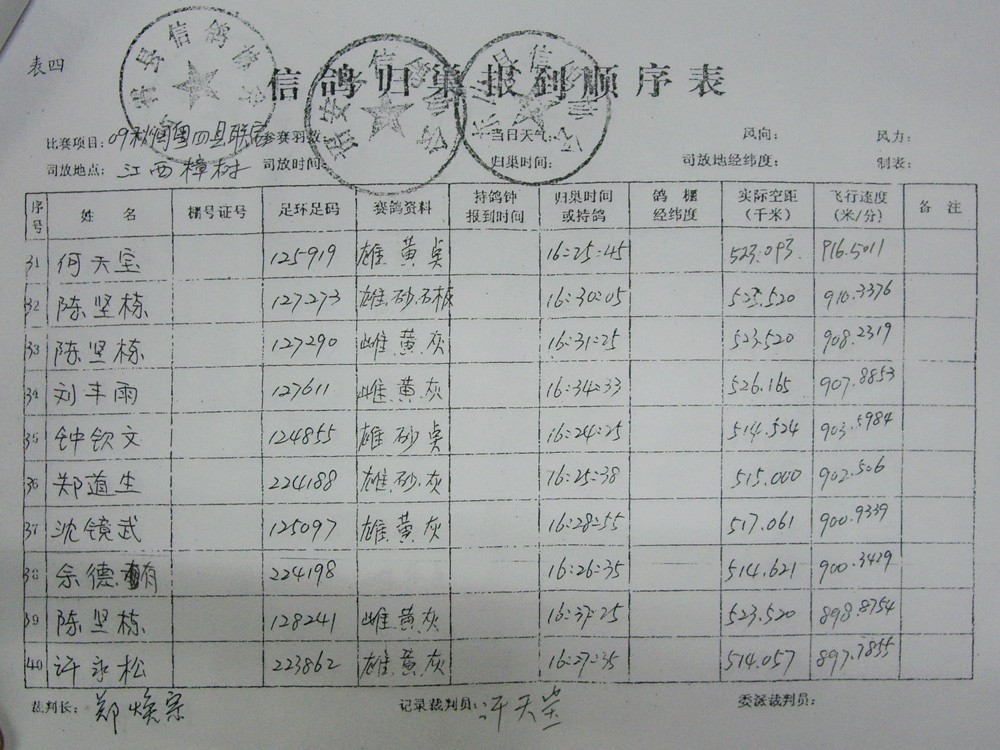 表四
信鸽归巢报到顺序表
比赛项目：09秋闽粤四县联 参赛羽数： 当日天气： 风向： 风力：
司放地点：江西樟树 司放时间： 归巢时间： 司放地经纬度： 制表：
序号 姓 名 棚号证号 足环足码 赛鸽资料 持鸽钟报到时间 归巢时间或持鸽 鸽棚经纬度 实际空距（千米） 飞行速度（米/分） 备 注
31 何天宝 125919 雄 黄 16:25:45 523.093 916.5011
32 陈坚栋 127273 雄.砂.石板 16:30:05 523.520 910.3376
33 陈坚栋 127290 雌.黄.灰 16:31:25 523.520 908.2319
34 刘丰雨 127611 雌.黄.灰 16:34:33 526.165 907.8853
35 钟钦文 124855 雄 砂 16:24:25 514.524 903.5984
36 郑道生 224188 雄.砂.灰 16:25:38 515.000 902.506
37 沈镜武 125097 雄.黄灰 16:28:55 517.061 900.9339
38 余德有 224198 16:26:35 514.621 900.3429
39 陈坚栋 128241 雌.黄.灰 16:37:25 523.520 898.8754
40 许永松 223862 雄.黄灰 16:27:35 514.057 897.7855
裁判长：郑焕宗 记录裁判员：许天 委派裁判员：